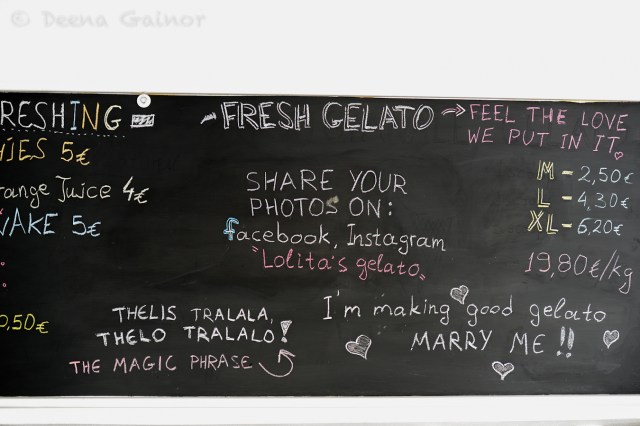 © Deena Gainor
RESHING
IES 5€
range Juice 4€
AKE 5€
0,50€
FRESH GELATO → FEEL THE LOVE
WE PUT IN IT
SHARE YOUR
PHOTOS ON:
facebook, Instagram
"Lolita's gelato"
M - 2,50€
L - 4,30€
XL - 6,20€
19,80€/kg
THELIS TRALALA,
THELO TRALALO!
THE MAGIC PHRASE
I'm making good gelato
MARRY ME!!